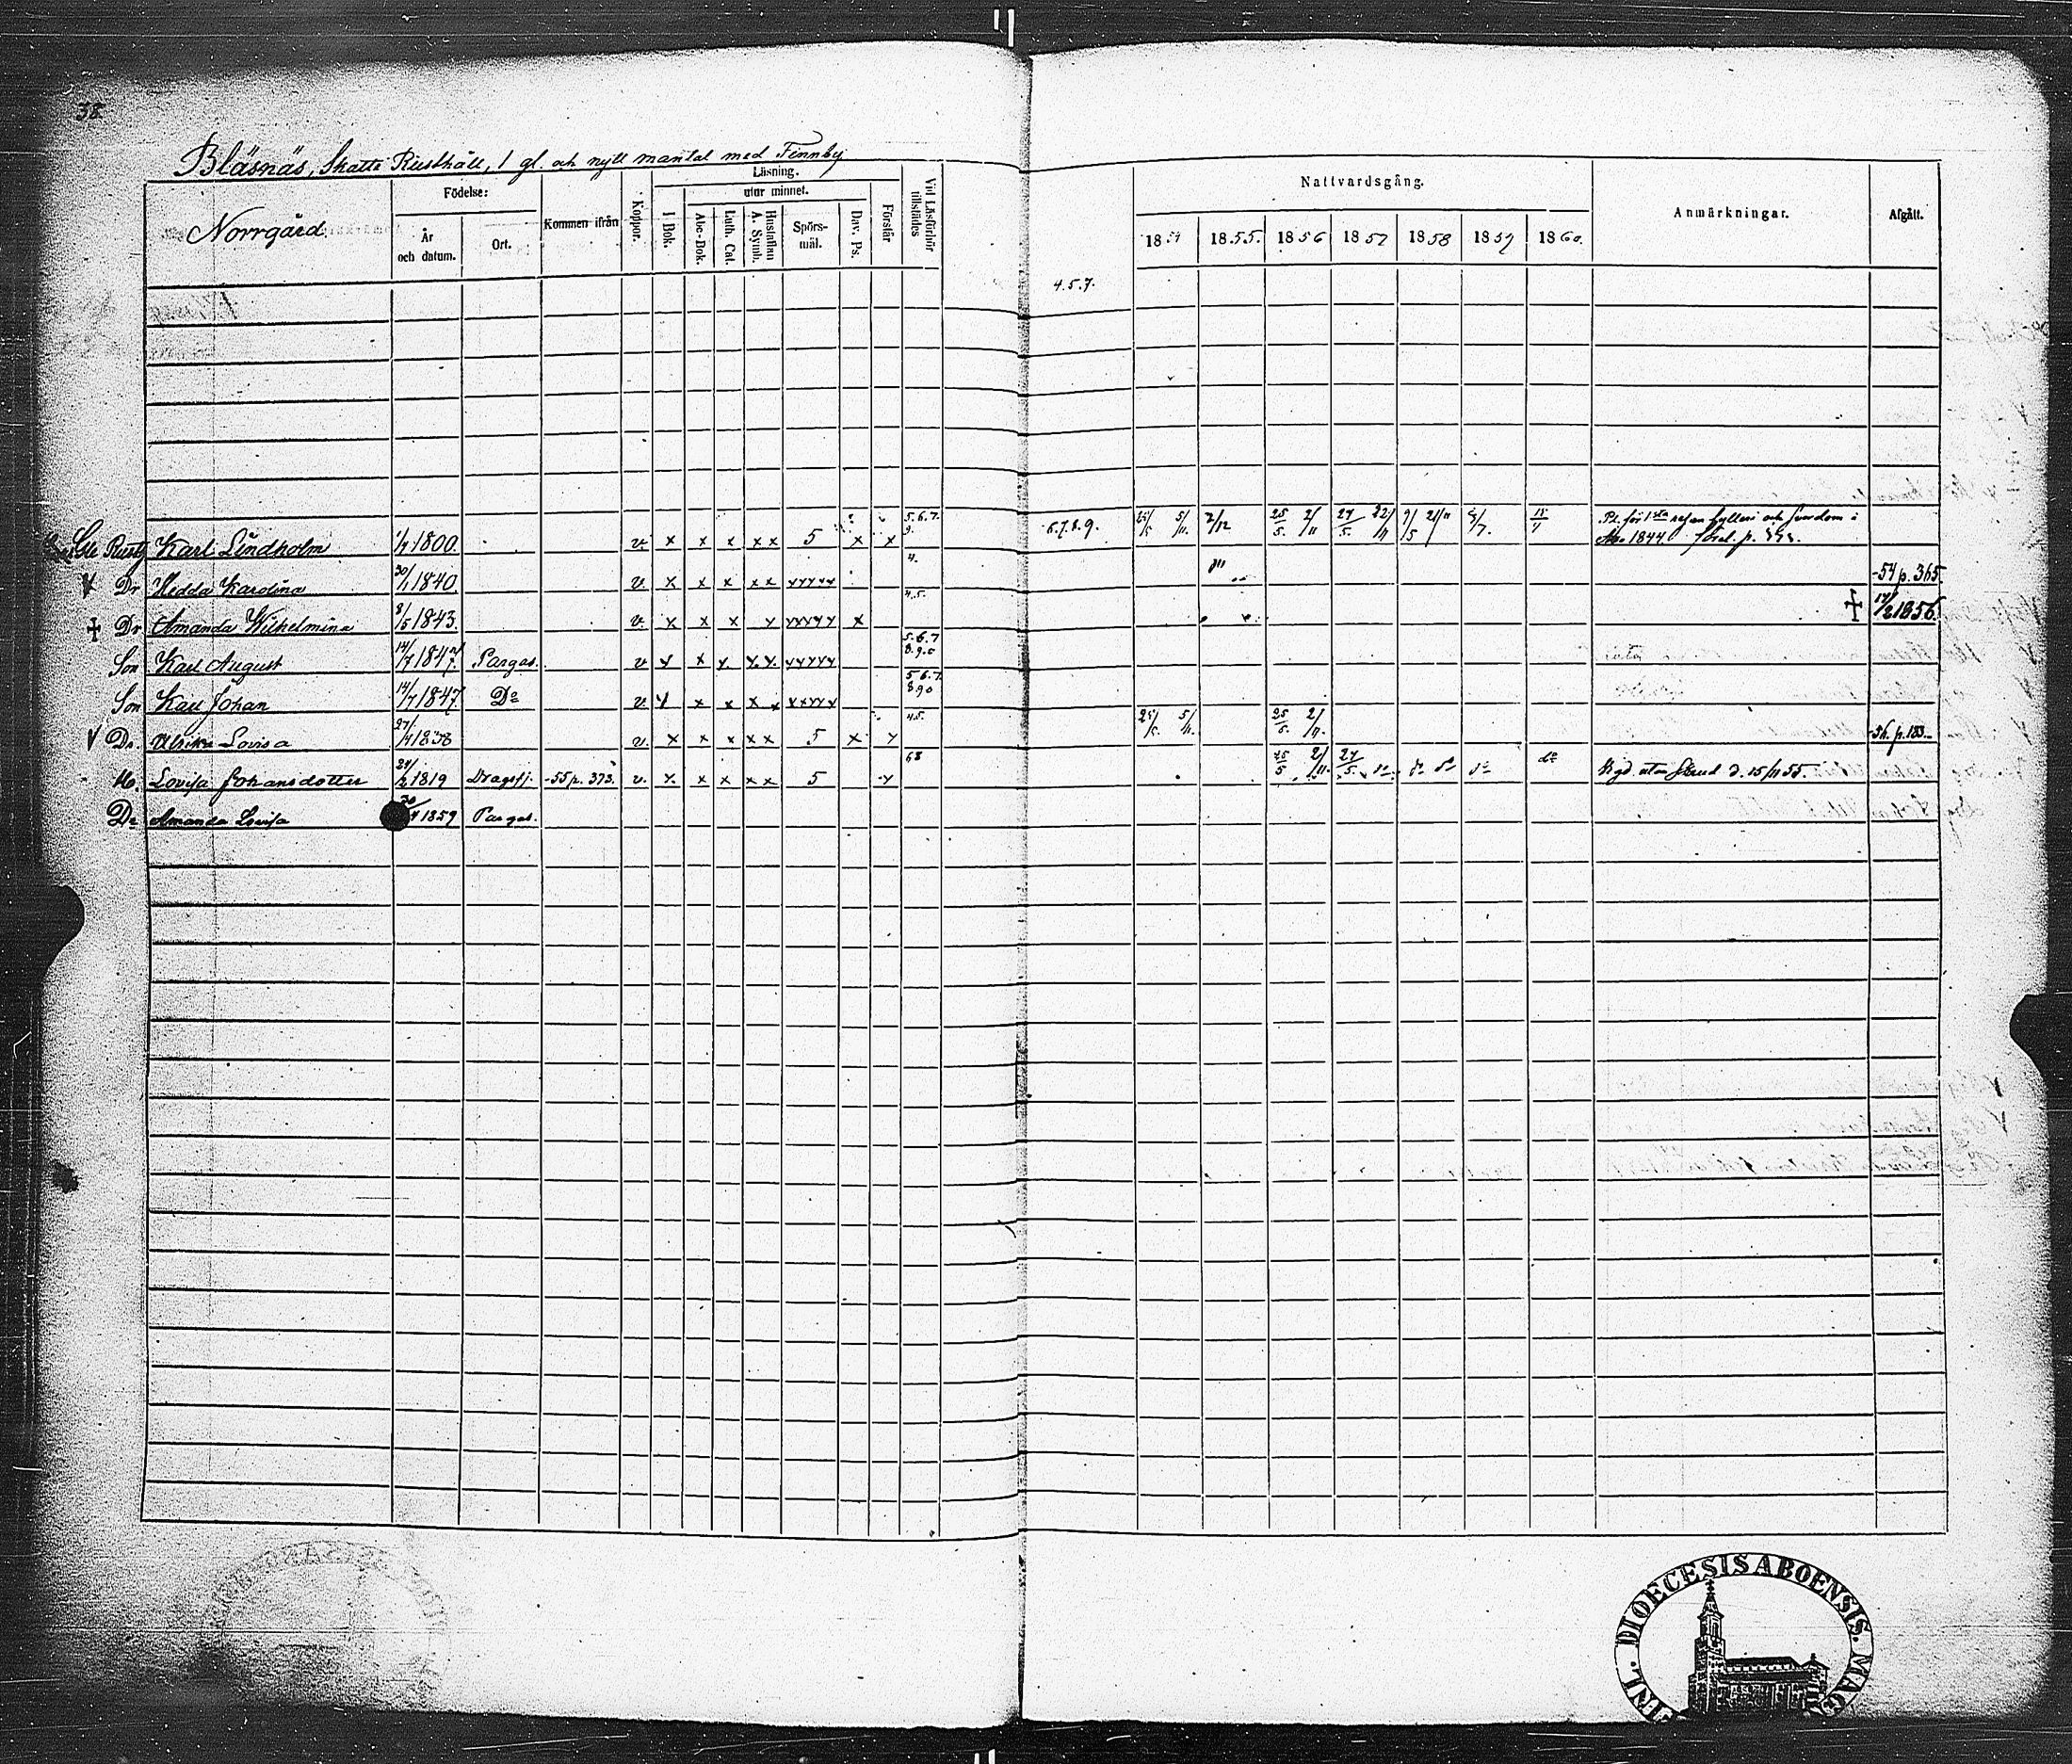 38.
Bläsnäs, Skatte Rusthåll, 1 gl. och nytt mantal med Finnby
Norrgård
Födelse:
År och datum.
Ort.
Kommen ifrån
Koppor.
Läsning.
I Bok.
utur minnet.
Abc-Bok.
Luth. Cat.
Hustaflan A. Symb.
Spörs-mål.
Dav. Ps.
Förstår
Vid Läsförhör tillstädes
Nattvardsgång.
1854 1855. 1856 1857 1858 1859 1860.
Anmärkningar.
Afgått.
4.5.7.
Karl Lindholm 1/7 1800. v. x x x x x 5 x x 5.6.7. 9. 6.7.8.9. 2/12 25/5 2/11 24/5 15/4 1844
Dr Hedda Karolina 30/1 1840. v. x x x x x xxxxx 4. -54 p. 365.
+ Dr Amanda Wilhelmina 8/5 1843. v. x x x x xxxxx x 4.5. + 17/2 1856.
Son Karl August 14/7 1847. Pargas. v x x x. x x. xxxxx 5.6.7 8.9.0
Son Karl Johan 14/7 1847 Do v. x x x x x xxxxx 5 6.7. 8 9 0
V Dr. Ulrika Lovisa 27/4 1838 v. x x x x x 5 x x 4.5. 25/5 5/11. 25/5. 2/11. -56. p. 183.
H. Lovisa Johansdotter 24/2 1819 Dragsfj. -55 p. 373. v. x x x x x 5 x 68 25/5 2/11. 24/5. do do do do do Vigd utan Brud d. 15/11 55.
Dr Amanda Lovisa 1859 Pargas.
DIOECESIS ABOENSIS. MAG